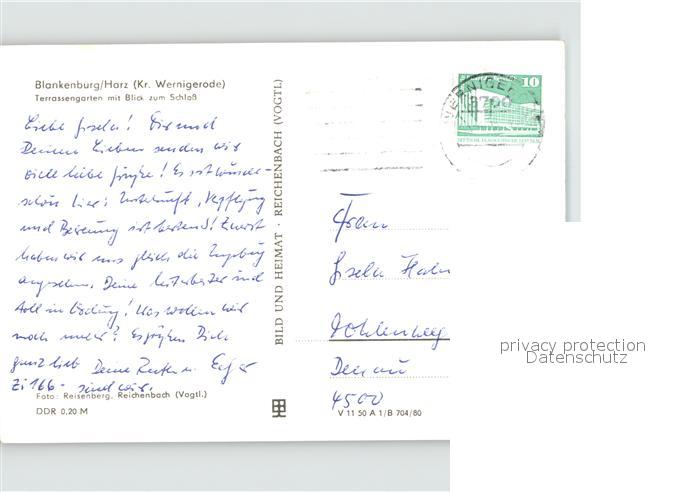 Blankenburg/Harz (Kr. Wernigerode)
Terrassengarten mit Blick zum Schloß
Liebe Gisela! Dir und
Deinen Lieben senden wir
viele liebe Grüße! Es ist wunder-
schön hier: Unterkunft, Verpflegung
und Betreuung ist bestens! Zuerst
haben wir uns gleich die Umgebung
angesehen. Deine
toll in Ordnung! Was wollen wir
noch mehr? Es grüßen Dich
ganz lieb Deine u.
Zi 166 - sind wir.
Foto: Reisenberg, Reichenbach (Vogtl.)
DDR 0,20 M
BILD UND HEIMAT · REICHENBACH (VOGTL)
V 11 50 A 1/B 704/80
WERNIGER
3700
10
DEUTSCHE DEMOKRATISCHE REPUBLIK
Frau
Gisela
Dessau
4500
privacy protection
Datenschutz